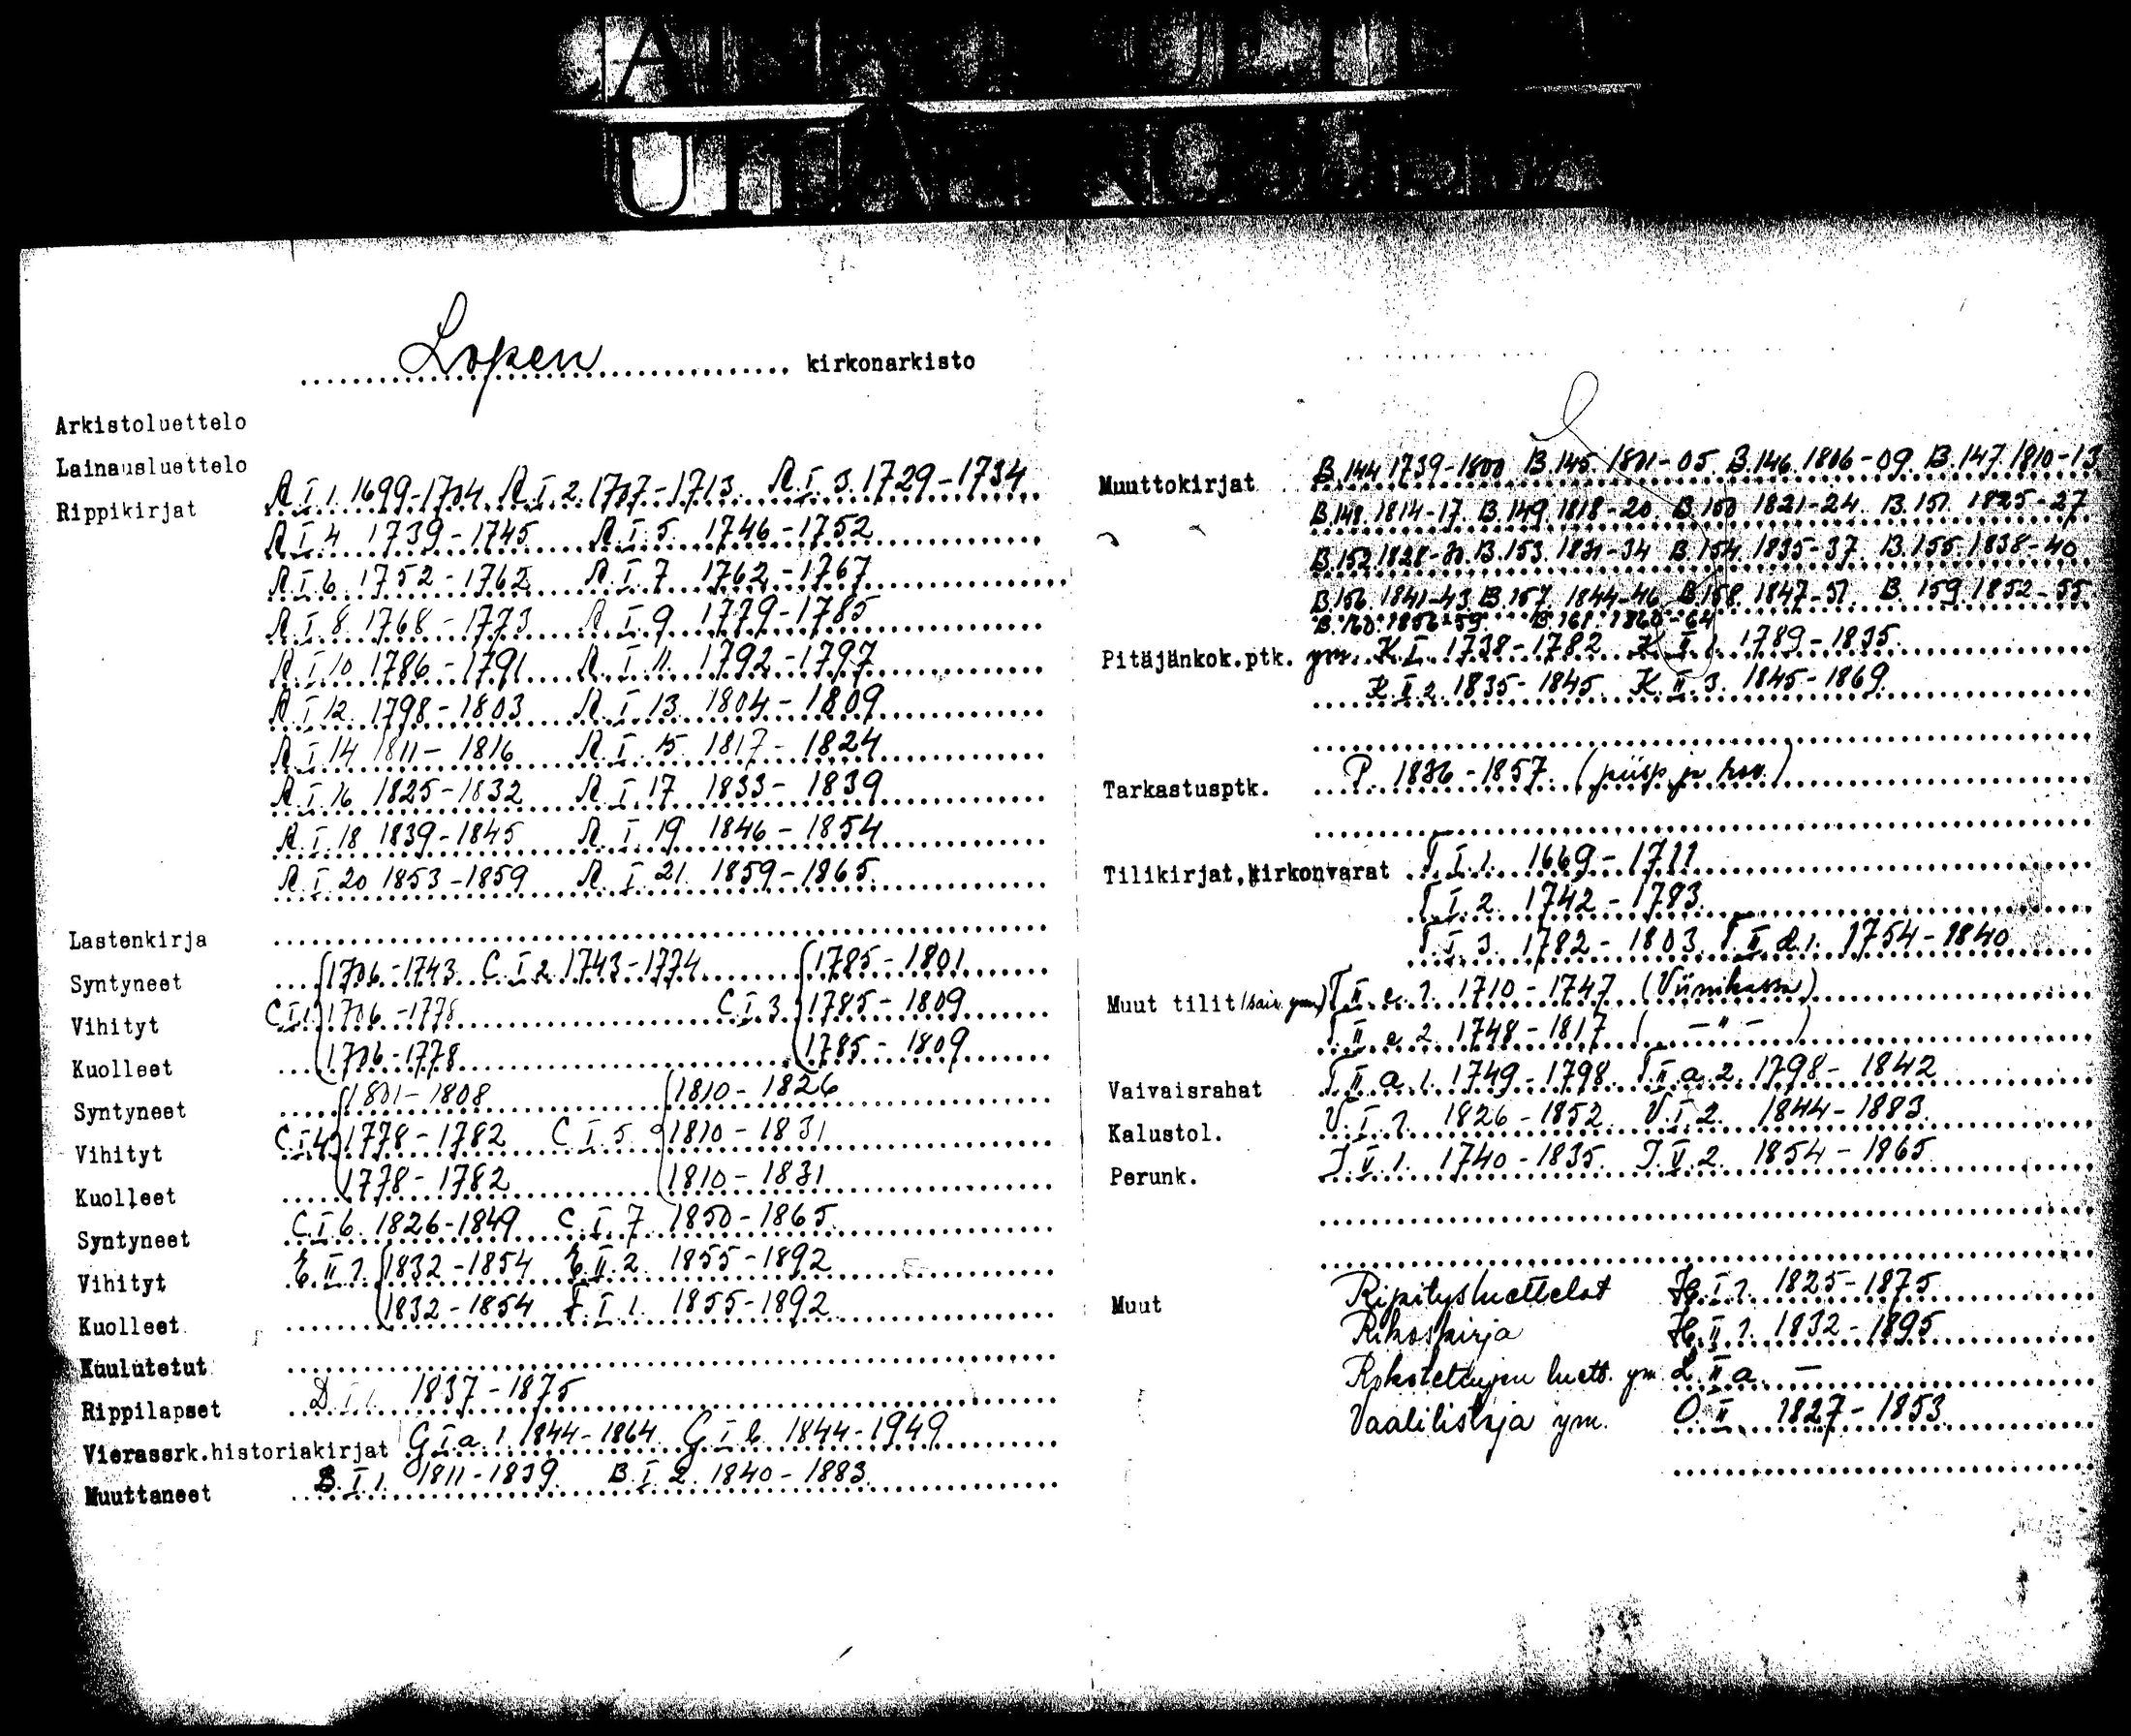 Lopen kirkonarkisto
Arkistoluettelo
Lainausluettelo
Rippikirjat A.I.1. 1699-1704 A.I.2. 1707-1713 A.I.3. 1729-1734
A.I.4 1739-1745 A.I.5. 1746-1752
A.I.6. 1752-1762 A.I.7 1762-1767
A.I.8. 1768-1773 A.I.9 1779-1785
A.I.10 1786-1791 A.I.11. 1792-1797
A.I.12. 1798-1803 A.I.13. 1804-1809
A.I.14 1811-1816 A.I.15. 1817-1824
A.I.16 1825-1832 A.I.17 1833-1839
A.I.18 1839-1845 A.I.19 1846-1854
A.I.20 1853-1859 A.I.21. 1859-1865
Lastenkirja
Syntyneet 1706-1743 C.I.2. 1743-1774 1785-1801
Vihityt C.I.1. 1706-1778 C.I.3. 1785-1809
Kuolleet 1706-1778 1785-1809
Syntyneet 1801-1808 1810-1826
Vihityt C.I.4. 1778-1782 C.I.5. 1810-1831
Kuolleet 1778-1782 1810-1831
Syntyneet C.I.6. 1826-1849 C.I.7. 1850-1865
Vihityt E.II.1. 1832-1854 E.II.2. 1855-1892
Kuolleet 1832-1854 F.I.1. 1855-1892
Kuulutetut
Rippilapset D.I.1. 1837-1875
Vierassrk.historiakirjat G.I.a.1. 1844-1864 G.I.b. 1844-1949
Muuttaneet B.I.1. 1811-1839 B.I.2. 1840-1883
Muuttokirjat B.144 1739-1800 B.145 1801-05 B.146. 1806-09. B.147. 1810-13
B.148. 1814-17. B.149. 1818-20. B.150 1821-24. B.151. 1825-27
B.152 1828-30. B.153. 1831-34 B.154. 1835-37. B.155. 1838-40
B.156. 1841-43 B.157 1844-46 B.158. 1847-51. B.159. 1852-55
B.160. 1856-59. B.161. 1860-64
Pitäjänkok.ptk. ym. K.I. 1738-1782 K.II.1. 1789-1835
K.II.2. 1835-1845 K.II.3. 1845-1869
Tarkastusptk. P. 1836-1857. (piisp. ja rov.)
Tilikirjat,kirkonvarat T.I.1. 1669-1711
T.I.2. 1742-1783.
T.I.3. 1782-1803 T.II.d.1. 1754-1840
Muut tilit (sair. ym.) T.II.c.1. 1710-1747 (Viinikassa)
T.II.c.2. 1748-1817 ( —"— )
Vaivaisrahat T.II.a.1. 1749-1798. T.II.a.2. 1798-1842
Kalustol. V.I.1. 1826-1852 V.I.2. 1844-1883.
Perunk. J.V.1. 1740-1835. J.V.2. 1854-1865
Muut Ripitysluettelot H.I.1. 1825-1875
Rikoskirja H.II.1. 1832-1895
Rokotettujen luett. ym. L.II.a. —
Vaalilistoja ym. O.II. 1827-1853